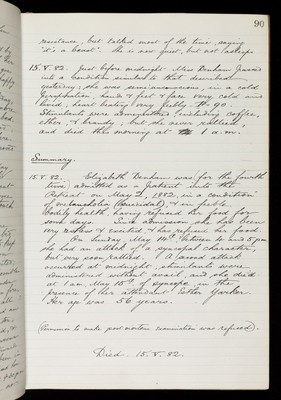 90
resistance, but talked most of the time, saying
"it's a beast". She is now quiet, but not asleep.
15.5.82. Just before midnight Miss Denham passed
into a condition similar to that described
yesterday; she was semi-unconscious, in a cold
perspiration, hands & feet & face very cold and
livid, heart beating very feebly. P. 90.
Stimulants were administered, including coffee,
ether, & brandy, but she never rallied,
and died this morning at 1 a.m.
Summary.
15.5.82. Elizabeth Denham was for the fourth
time admitted as a patient into the
Retreat on May 2, 1882, in a condition
of melancholia & in feeble
bodily health, having refused her food for
some days. Since admission she has been
very restless & excited, & has refused her food.
On Sunday, May 14th, between 4 and 5 p.m.
she had an attack of a syncopal character,
but very soon rallied. A second attack
occurred at midnight, stimulants were
administered without avail, and she died
at 1 a.m. May 15th, of syncope, in the
presence of her attendant Esther Yarker.
Her age was 56 years.
(Permission to make post mortem examination was refused).
Died. 15.5.82.